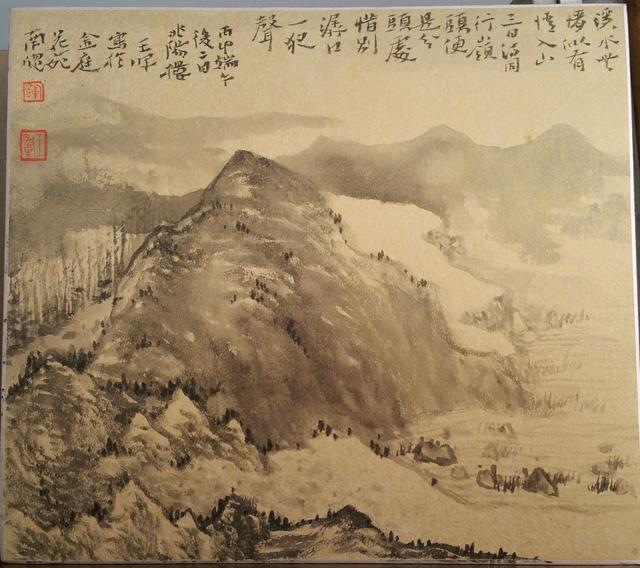 溪水無
情似有
情入山
三日得同
行嶺
頭便
是分
頭處
惜別
潺湲
一夜
聲
丙申端午
後二日
兆陽樓
王暉
寫於
金庭
花苑
南窗